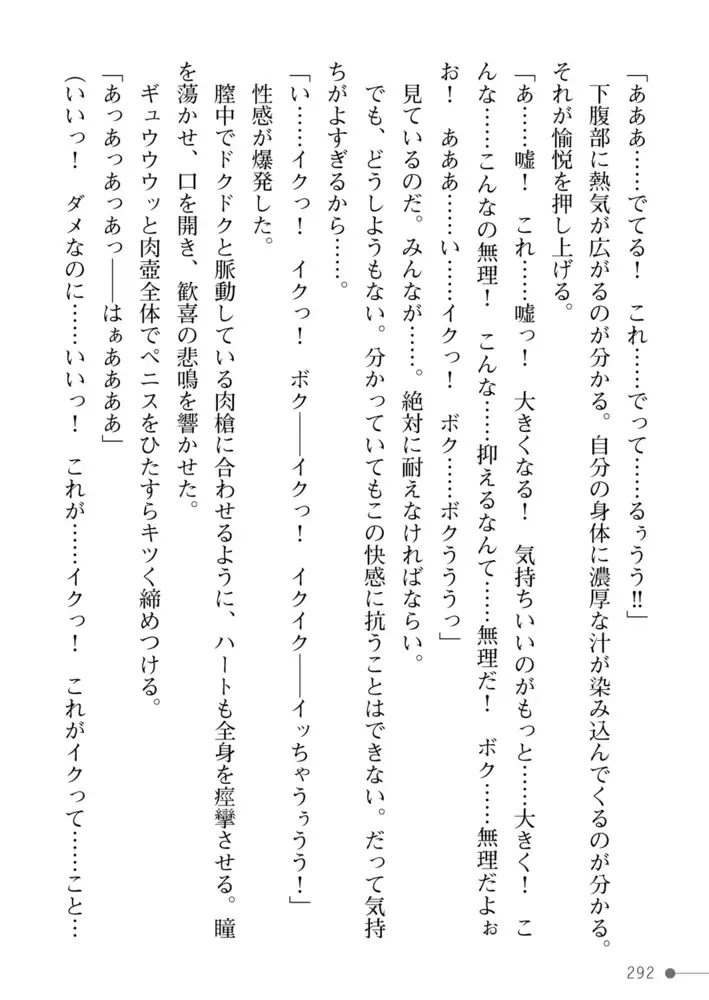 「あああ……でてる！　これ……でって……るぅうう‼」
　下腹部に熱気が広がるのが分かる。自分の身体に濃厚な汁が染み込んでくるのが分かる。
それが愉悦を押し上げる。
「あ……嘘！　これ……嘘っ！　大きくなる！　気持ちいいのがもっと……大きく！　こ
んな……こんなの無理！　こんな……抑えるなんて……無理だ！　ボク……無理だよぉ
お！　あああ……い……イクっ！　ボク……ボクうううっ」
　見ているのだ。みんなが……。絶対に耐えなければならい。
　でも、どうしようもない。分かっていてもこの快感に抗うことはできない。だって気持
ちがよすぎるから……。
「い……イクっ！　イクっ！　ボク――イクっ！　イクイク――イッちゃうぅうう！」
　性感が爆発した。
　膣中でドクドクと脈動している肉槍に合わせるように、ハートも全身を痙攣させる。瞳
を蕩かせ、口を開き、歓喜の悲鳴を響かせた。
　ギュウウウッと肉壺全体でペニスをひたすらキツく締めつける。
「あっあっあっあっ――はぁああああ」
（いいっ！　ダメなのに……いいっ！　これが……イクっ！　これがイクって……こと…
292